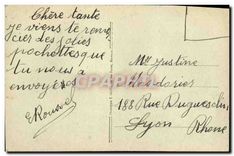 Chère tante
je viens te remer
cier des jolies
pochettes que
tu nous a
envoyées
E Roussel
Mlle Justine
Desdarier
188 Rue Duguesclin
Lyon Rhone
CARTE POSTALE